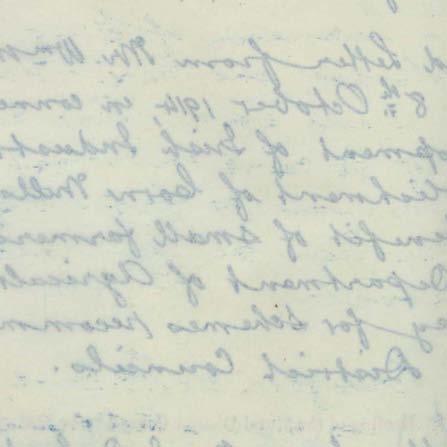 d letter from Mr. Wm M
8th October 1914, in conne
opment of Irish Industr
lishment of Corn Mills
enefit of small farmers
Department of Agricult
ey for schemes recomm
District Councils.